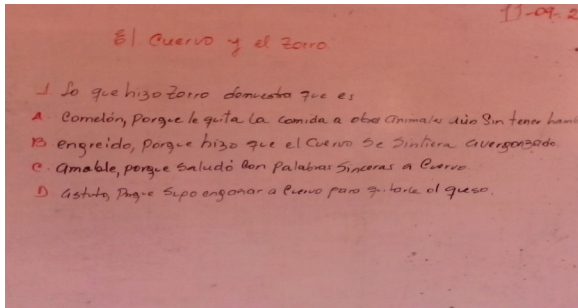 11-09-2
El Cuervo y el Zorro
1 Lo que hizo Zorro demuestra que es
A. Comelón, Porque le quita la comida a otros animales aún Sin tener ham
B engreido, Porque hizo que el Cuervo Se Sintiera avergonzado.
C. amable, porque Saludó Con Palabras Sinceras a Cuervo.
D astuto, Porque Supo engañar a Cuervo para quitarle el queso.